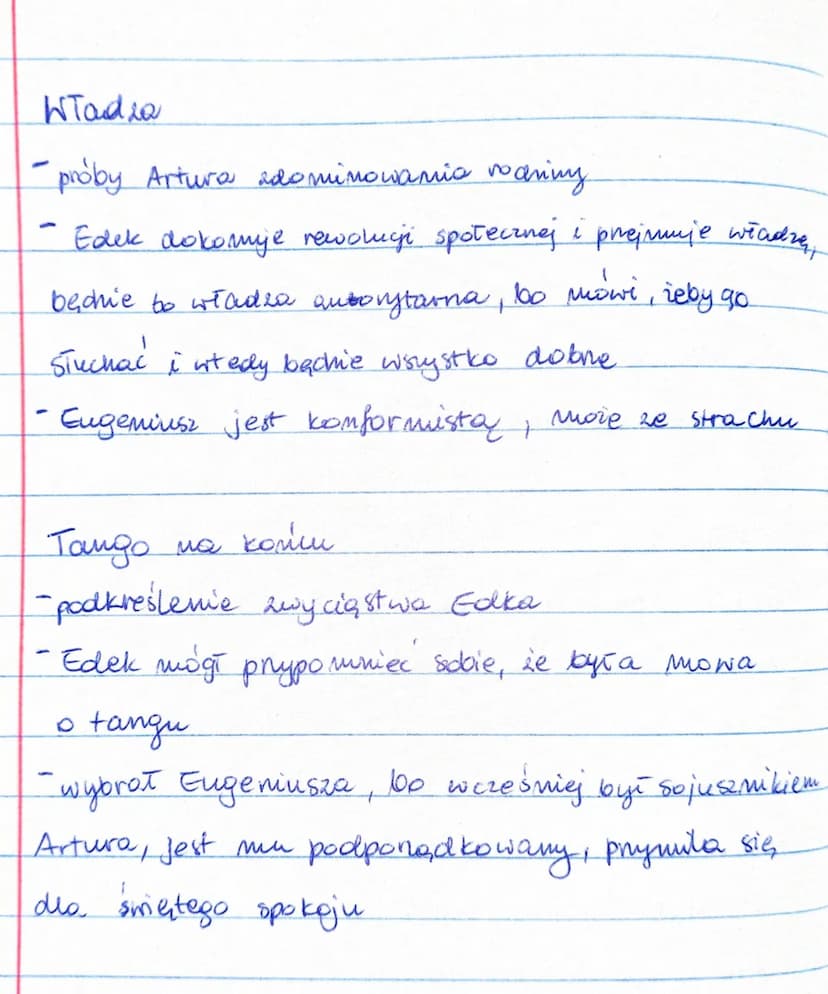 Władza
- próby Artura zdominowania rodziny
- Edek dokonuje rewolucji społecznej i przejmuje władzę,
będzie to władza autorytarna, bo mówi, żeby go
słuchać i wtedy będzie wszystko dobrze
- Eugeniusz jest konformistą, może ze strachu
Tango na końcu
- podkreślenie zwyciąstwa Edka
- Edek mógł przypomnieć sobie, że była mowa
o tangu
- wybrał Eugeniusza, bo wcześniej był sojusznikiem
Artura, jest mu podporządkowany, przymila się
dla świętego spokoju